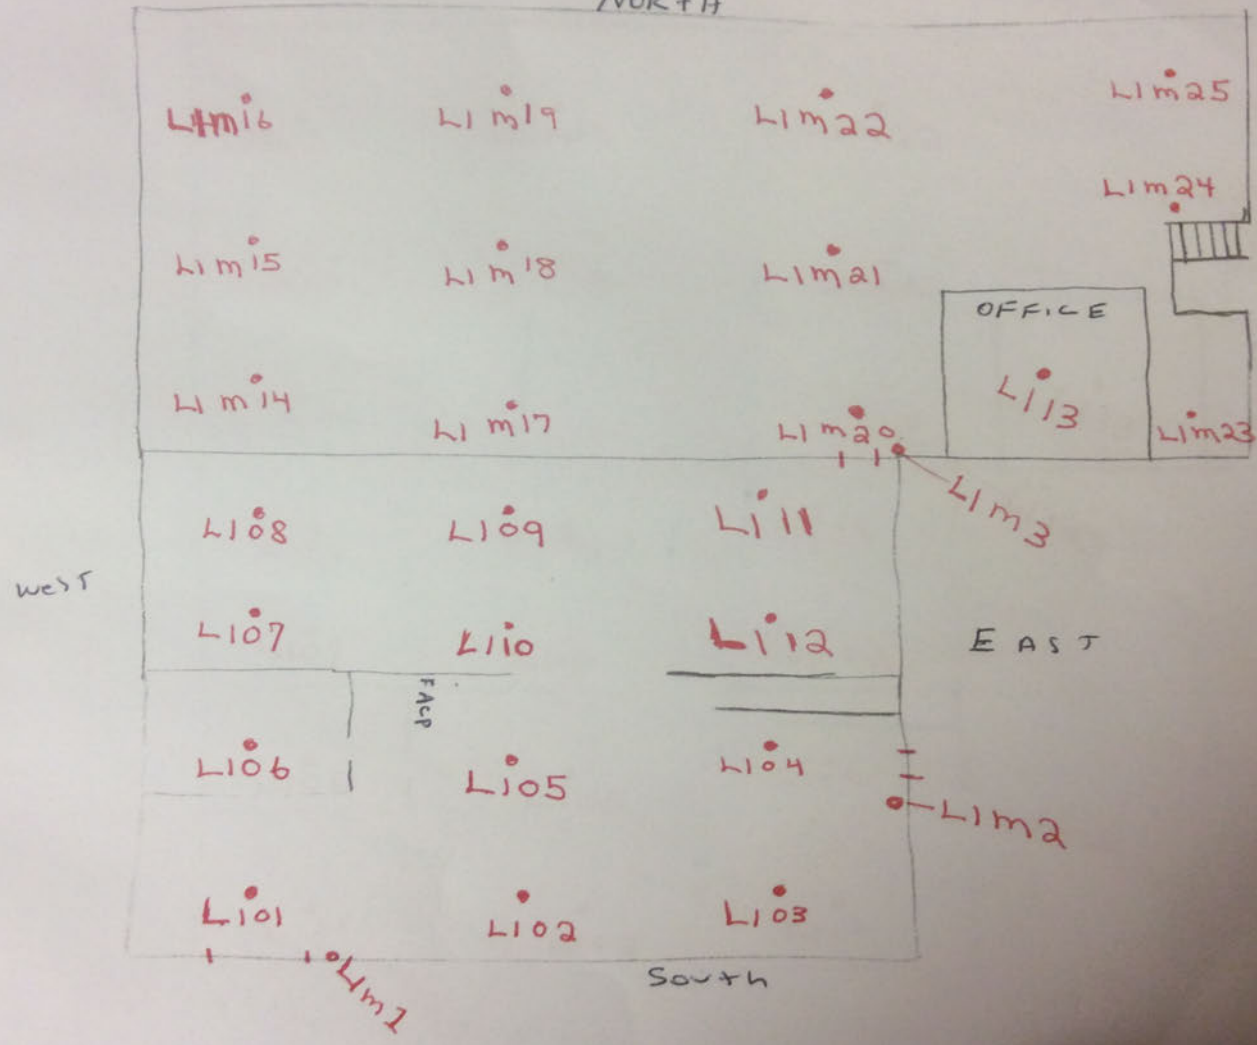 NORTH
L1m16
L1m19
L1m22
L1m25
L1m24
L1m15
L1m18
L1m21
OFFICE
L1m14
L1m17
L1m20
L113
L1m23
L1m3
L108
L109
L111
West
L107
L110
L112
EAST
FACP
L106
L105
L104
L1m2
L101
L102
L103
South
L1m1